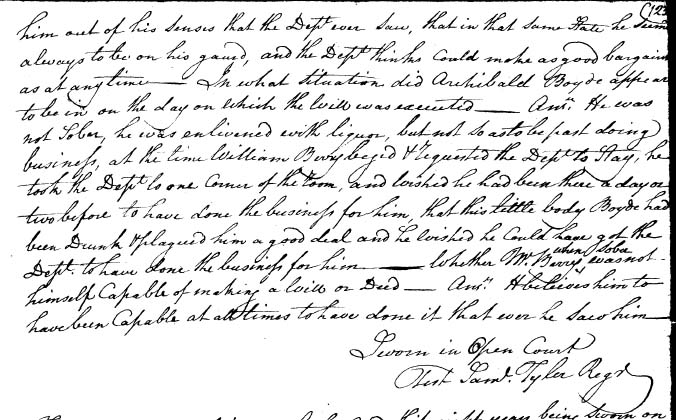 (123
him out of his senses that the Dept. ever saw, that in that same State he seem
always to be on his gaurd, and the Dept. thinks Could make as good bargain
as at any time — In what situation did Archibald Boyde appear
to be in on the day on which the will was executed — Ansr. He was
not Sober, he was enlivened with liquor, but not so as to be past doing
business, at the time William Berry beged & requested the Dept. to Stay, he
took the Dept. to one Corner of the room, and wished he had been there a day or
two before to have done the business for him, that this little body Boyde had
been Drunk & plagued him a good deal and he wished he Could have got the
Dept. to have done the business for him — Whether Mr. Berry when sober was not
himself Capable of making a will or Deed — Ansr. He believes him to
have been Capable at all times to have done it that ever he saw him —
Sworn in Open Court
Test Saml. Tyler Regr.
years being sworn on